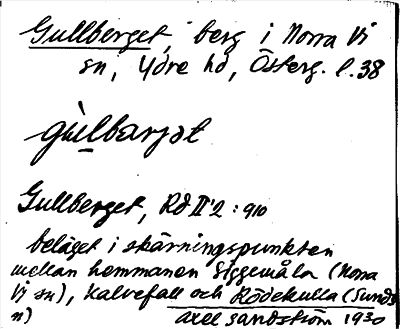 Gullberget, berg i Norra Vi
sn, Ydre hd, Österg. l. 38
gùlbarjət
Gullberget, Rd II 2 : 910
beläget i skärningspunkten
mellan hemmanen Siggemåla (Norra
Vi sn), Kalvefall och Rödekulla (Sunds
n) Axel Sandström 1930